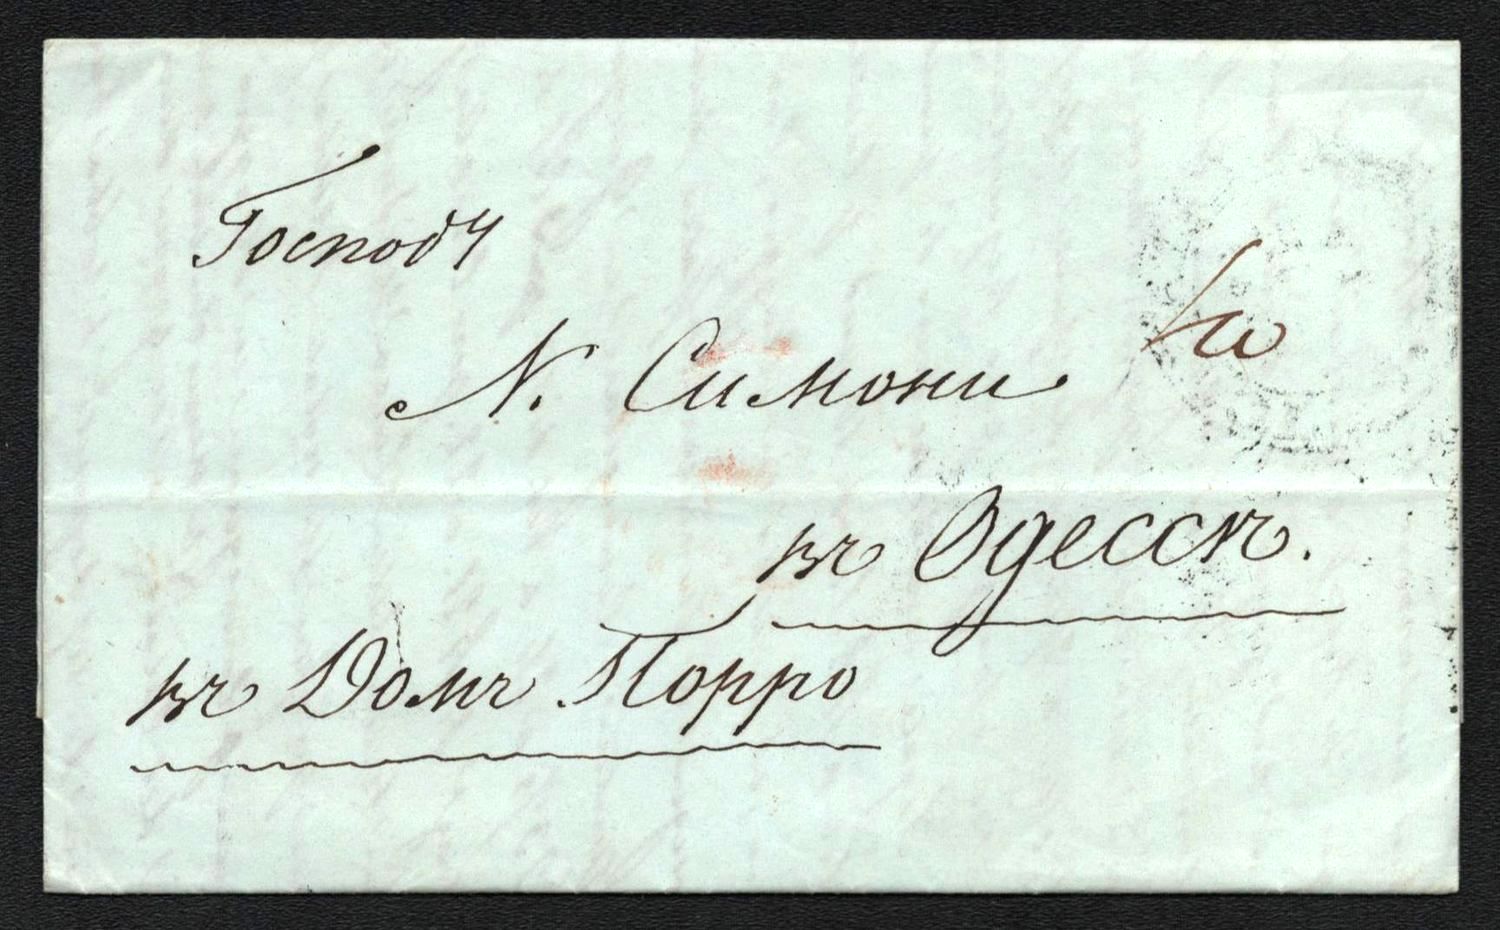 Господ
N. Симони
въ Одессѣ.
въ Домѣ Порро